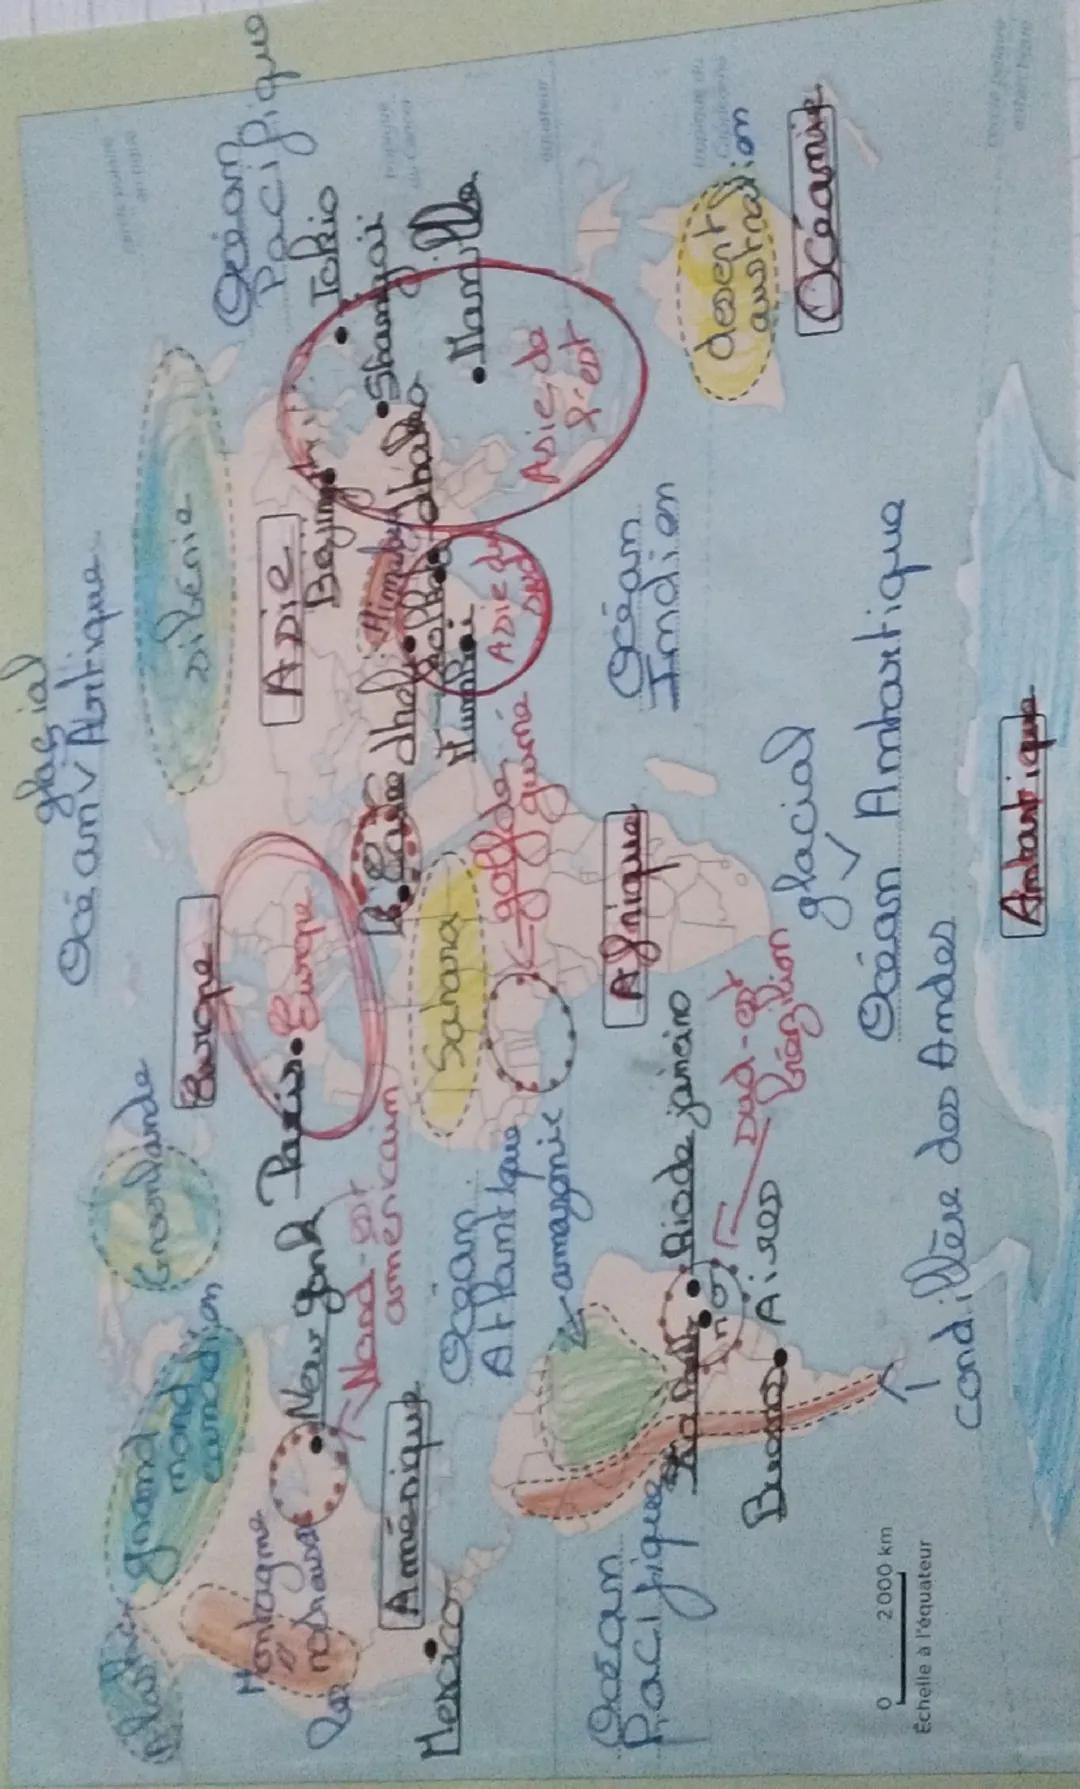 glacial
Océan Arctique
Océan
Pacifique
Groenlande
grand
nord
canadien
Alaska
Montagne
rocheuse
New york
Nord-est
américain
Amérique
Mexico
Europe
Paris
Europe
sibérie
Asie
Béijing
Tokio
Shangai
Manille
Asie de
l'est
Himalaya
dhaka
dheli
Mumbai
Asie du
sud
le Caire
Sahara
golfe de
guinée
Afrique
Océan
Atlantique
amazonie
Océan
Pacifique
Rio de janeiro
Sao Paulo
Buenos Aires
sud-est
brézilien
Océan
Indien
desert
australien
Océanie
glacial
Océan Antartique
cordillère des Andes
Antartique
cercle polaire
arctique
tropique
du Cancer
équateur
tropique du
Capricorne
cercle polaire
antarctique
0 2 000 km
Échelle à l'équateur